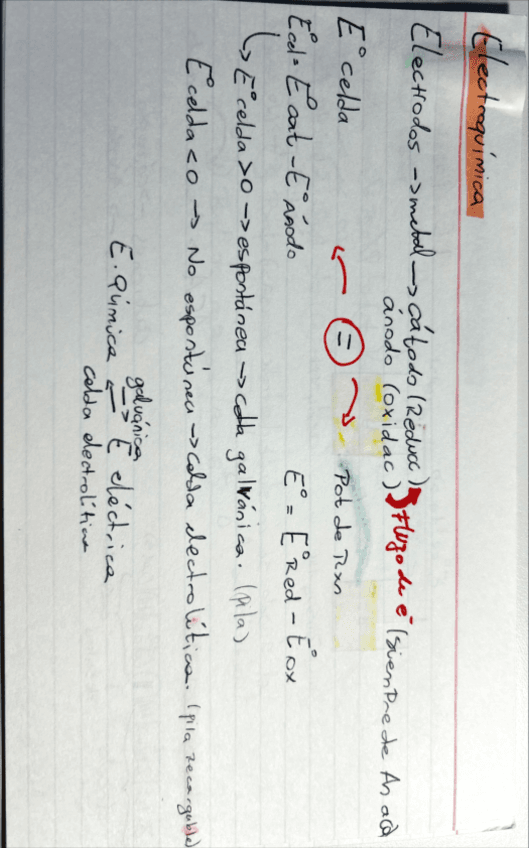 Electroquímica
Electrodos → metal → cátodo (Reducc)
ánodo (oxidac) Flujo de e⁻ (siempre de An a Cá)
E° celda = Pot de rxn
E°cel = E°cat - E° Ánodo E° = E° Red - E° ox
↳ E° celda > 0 → espontánea → celda galvánica. (pila)
E° celda < 0 → No espontánea → celda electrolítica. (pila recargable)
galvánica
E. Química ⇄ E eléctrica
celda electrolítica